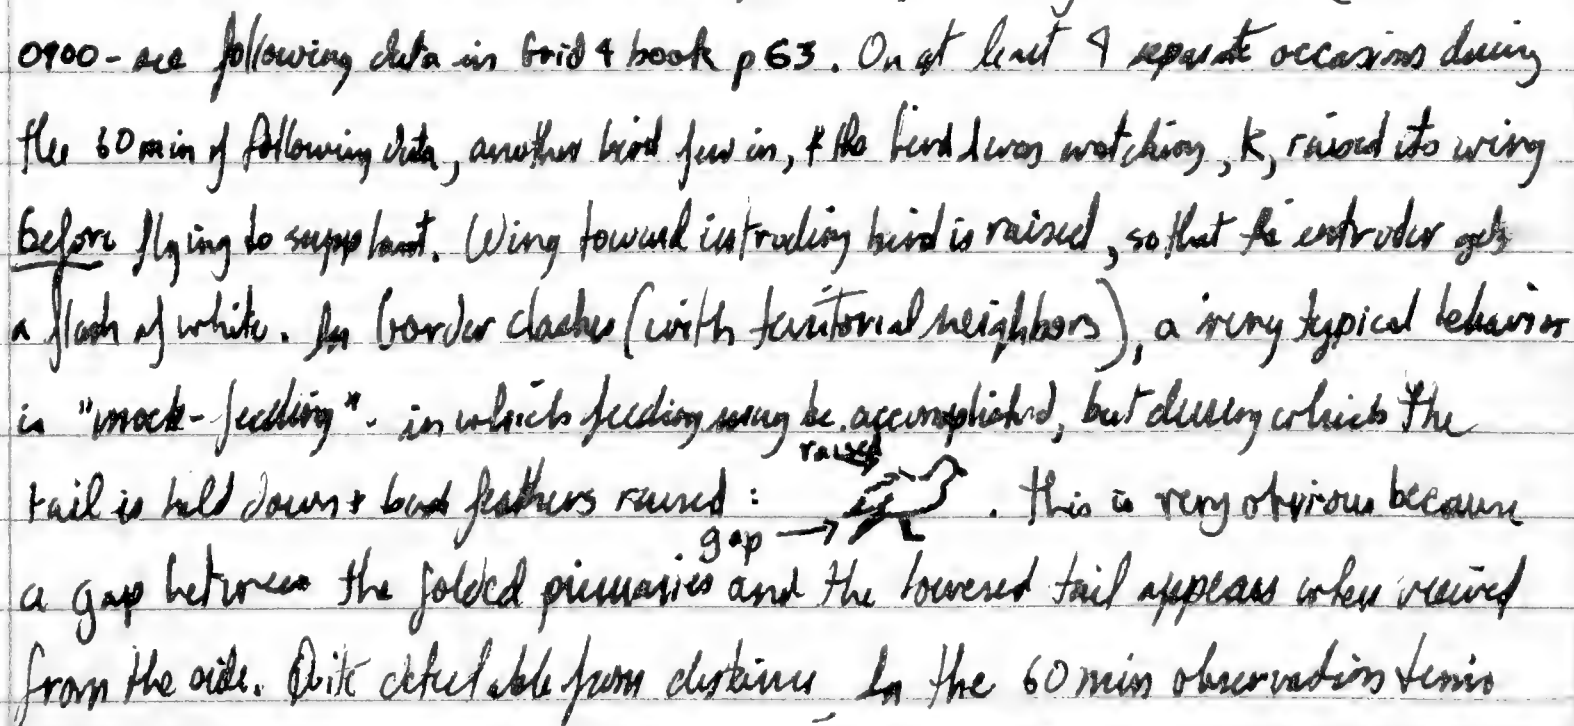 0900 - see following data in Grid 4 book p 63. On at least 4 separate occasions during
the 60 min of following data, another bird flew in, & the bird I was watching, K, raised its wing
before flying to supplant. Wing toward intruding bird is raised, so that the intruder gets
a flash of white. In border clashes (with territorial neighbors), a very typical behavior
is "mock-feeding" - in which feeding may be accomplished, but during which the
raised
tail is held down & back feathers raised : . This is very obvious because
gap
a gap between the folded primaries and the lowered tail appears when viewed
from the side. Quite detectable from distance. In the 60 min observation